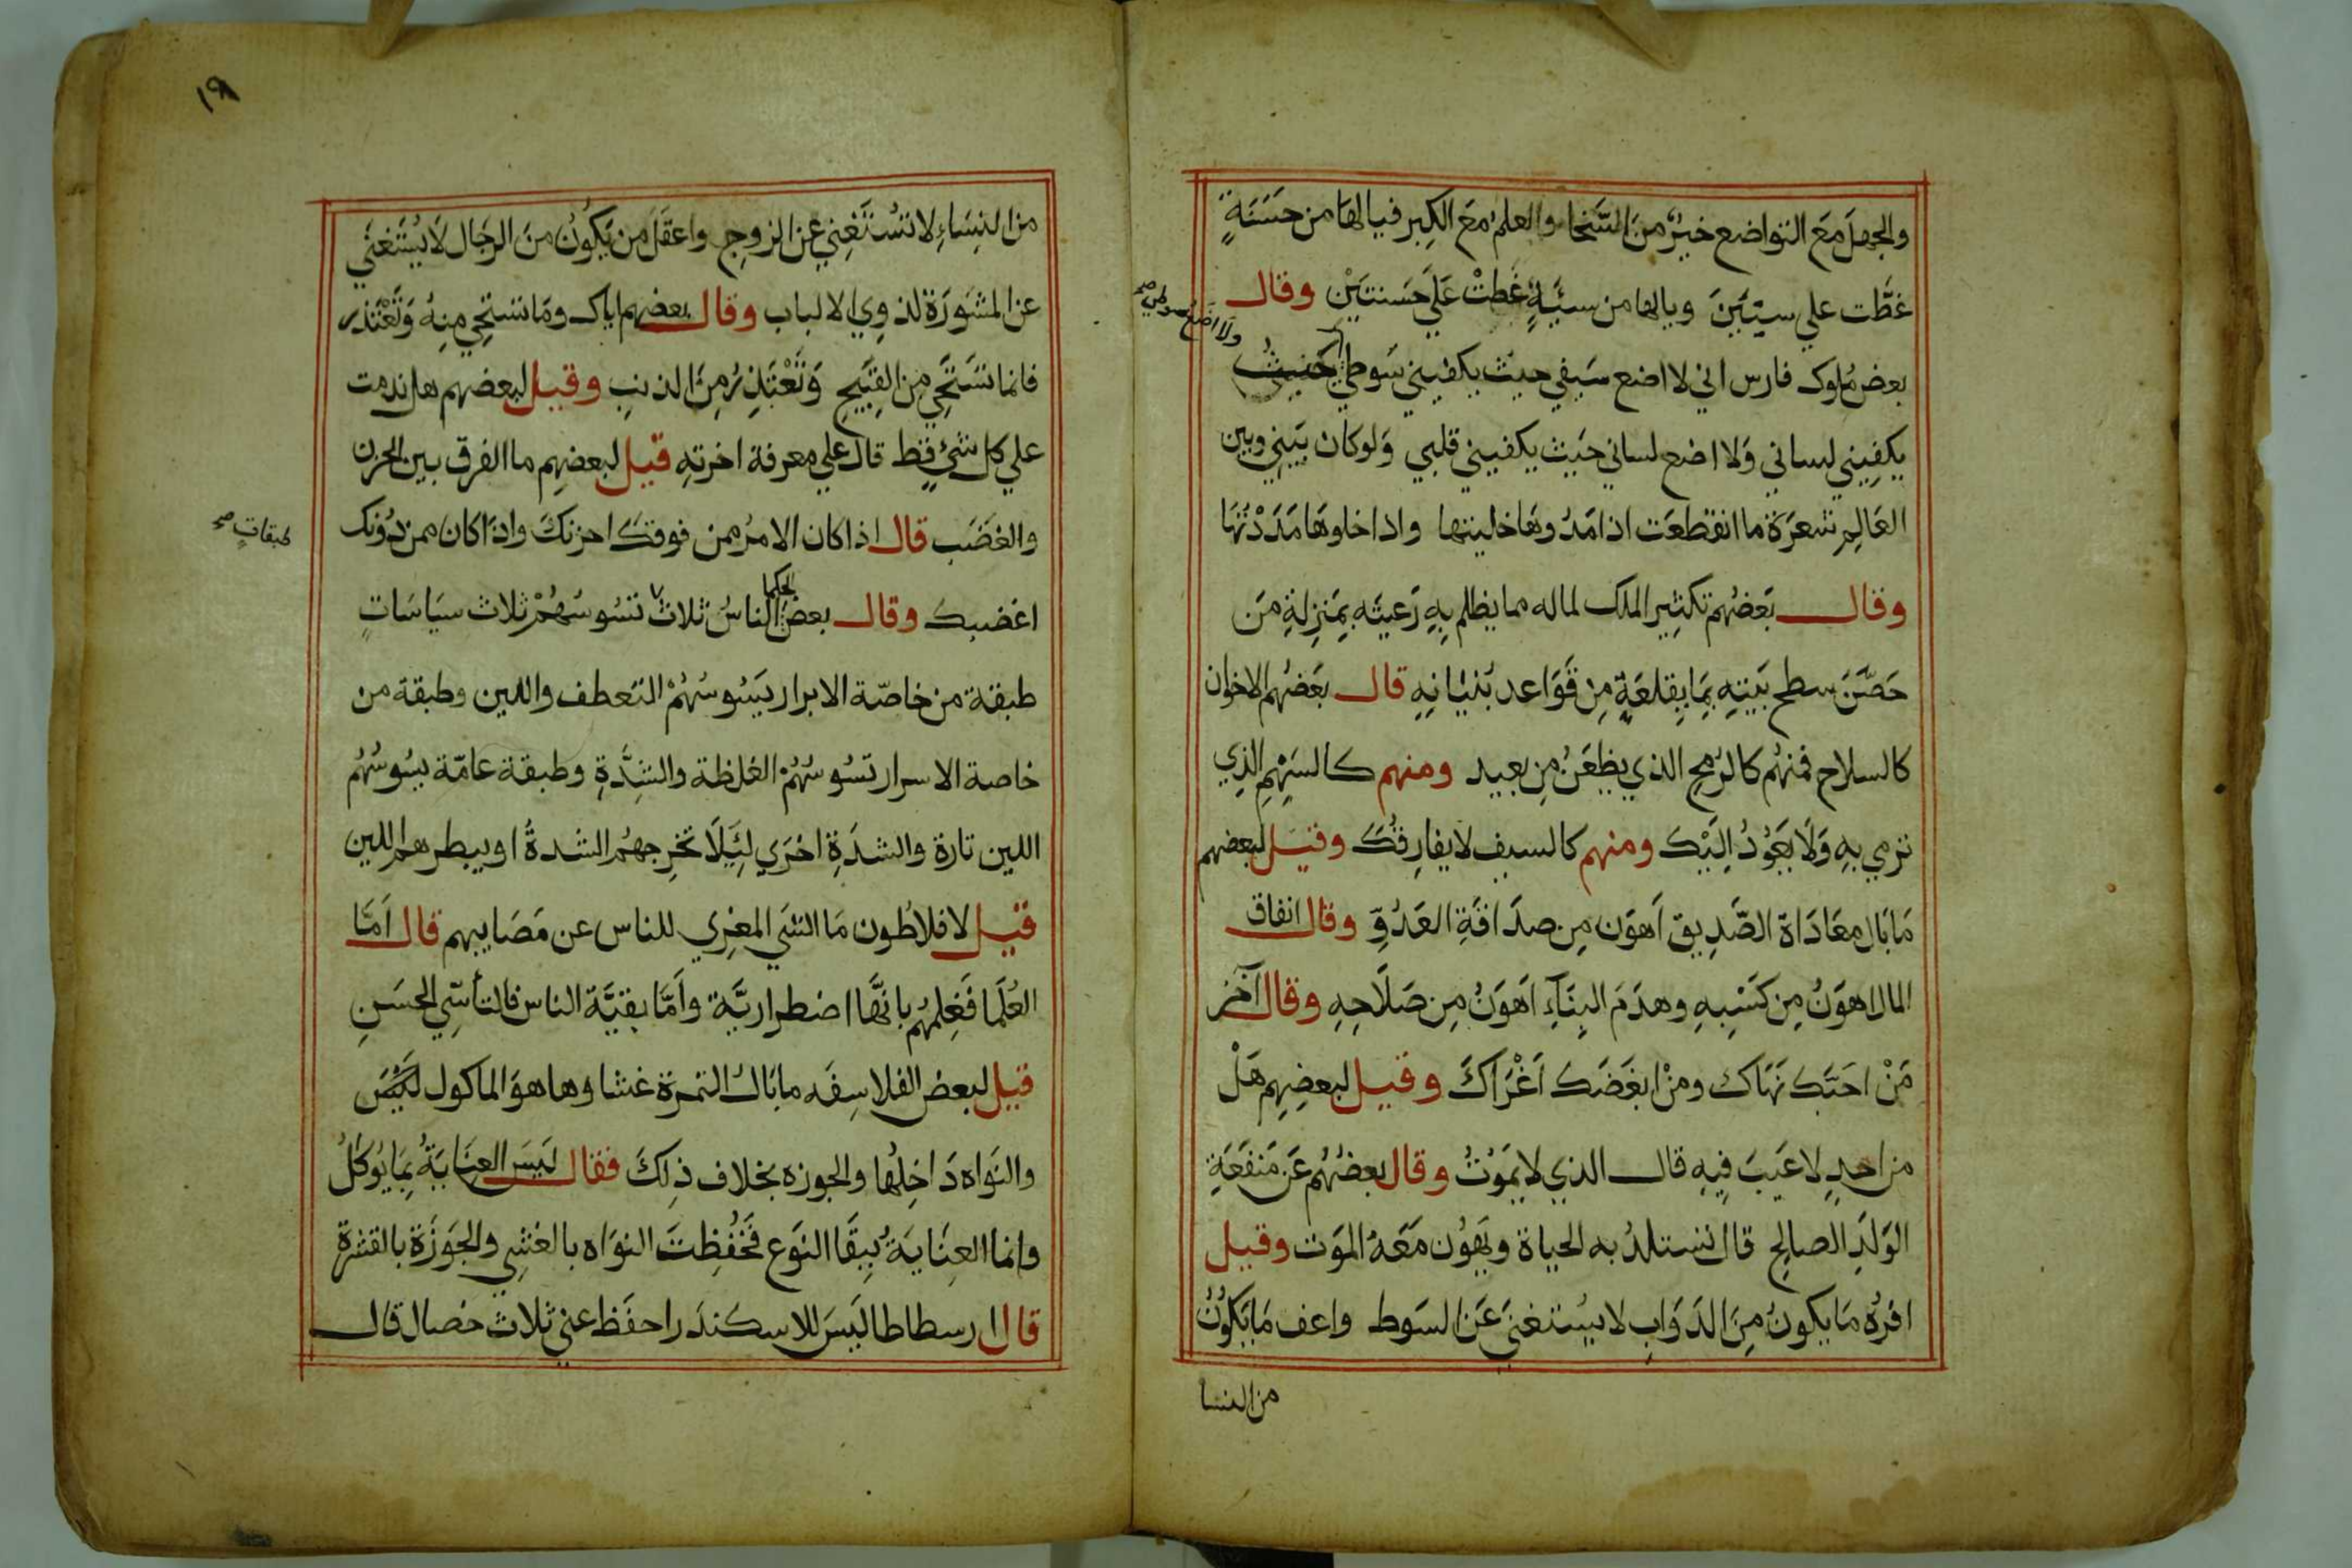 والجهلَ مَعَ التواضع خيرٌ منَ السَّخا والعلمُ مَعَ الكِبر فيالها من حسَنَةٍ
غطَّت علي سيّئتَينَ ويالها من سيَّئةٍ غطتْ عَلَي حَسَنتَيْن وقال
بعض مُلوك فارس اني لا اضع سَيفي حيث يكفيني سَوطي حَيثُ
ولا اضع سوطي صح
يكفِيني لساني وَلا اضع لساني حَيث يكفيني قلبي وَلوكان بَيني وبين
العَالِم شعرَة ما انقطعَت اذا مَدُوهَا خليتها واذا خلوها مَدَدْتُهَا
وقال بَعضُهم تكثِير الملك لماله مما يظلم بِهِ رَعيته بِمَنزِلةِ مَن
حَصَّنَ سطح بَيتِهِ بِمَا يِقلعَهٍ مِن قَوَاعد بُنيَانِهِ قال بَعضُهم الاخوان
كالسلاح فمنهُم كالرُمح الذي يطعَنُ مِن بعيد ومنهم كالسَهْمِ الذِي
ترمي بِهِ وَلَا يَعُوْدُ اِلَيْكَ ومنهم كالسيف لا يفارِقُكَ وقيَل لبعضهم
مَا بَال معَادَاة الصَّدِيق اَهوَن مِن صدَاقَةِ العَدُوِّ وقال انفاق
المال اهوَنُ مِن كَسْبِهِ وهدَمَ البِنَآءِ اَهوَنُ مِن صَلَاحِهِ وقال آخَر
مَنْ احَبَّكَ نَهَاك ومنْ ابغَضَكَ اَغْرَاكَ وقيل لبعضِهِم هَلْ
من احدٍ لا عَيبَ فِيهِ قال الذي لا يمَوْتُ وقال بعضُهُم عَن مَنفَعَةِ
الوَلَدِ الصالِح قال تستلذُ به الحياة ويَهوُن مَعَهُ المَوت وقيل
افرَهُ مَا يكونُ مِنَ الدَوَاب لا يستغنَي عَن السَوط واعف مَا يَكُونُ
من النسا
١٩٨
من النِسَاءِ لا تسُتَغنِي عن الزوج واعقَل من يَكُونُ منَ الرجَال لَا يُستَغنَي
عن المشوَرَة لذوِي الالباب وقال بعضهم اياك ومَا تستحِي مِنهُ وَتَعْتذر
فانما تسَتَحِي مِن القِبَيح وَتَعْتَذِرُ مِنَ الذنبِ وقيل لبعضهم هل ندمت
علي كل شئٍ قط قال علي معرفة اخرتهِ قيل لبعضهِم ما الفرق بين الحزن
والغضَب قال اذا كان الامرُ ممن فوقكَ احزنكَ واذَا كان ممن دُونك
اغضبك وقال بعض الحكما الناسُ ثلاث تسُوسُهُمْ ثلاث سيَاسَاتٍ
طبقات صح
طبقة من خاصّة الابرار يَسُوسُهُمْ التعطف واللين وطبقة من
خاصة الاسرار تسُوسُهُمْ الغلظة والشِدَّةِ وطبقة عامّة يسُوسُهُم
اللين تارة والشدَةِ اخرَي لئَيلَا تخرِجهُم الشدةُ او يبطرهم اللين
قيل لافلاطون مَا الشَي المعزِي للناس عن مَصَايبهم قال اَمَّا
العُلَمَا فَعِلمهُم بانَّها اضطراريَّة وأَمَّا بقيَّة الناس فالتأسِّي الحسَنِ
قيل لبعض الفلاسِفَه ما بَال التمرَة غشا وها هوَ الماكول لَيسَ
والنَواه دَاخِلُها والجوزه بخلاف ذِلكَ فقال ليَسَ العِنَايَةُ بِمَا يُوكَلُ
وانما العِنَايَةُ بِبقَا النَوع فَحُفِظتَ النوَاه بالغشِي والجَوزَة بالقشرة
قال ارسطاطاليَسَ للاسكندَر احفَظ عني ثلاث خصال قال